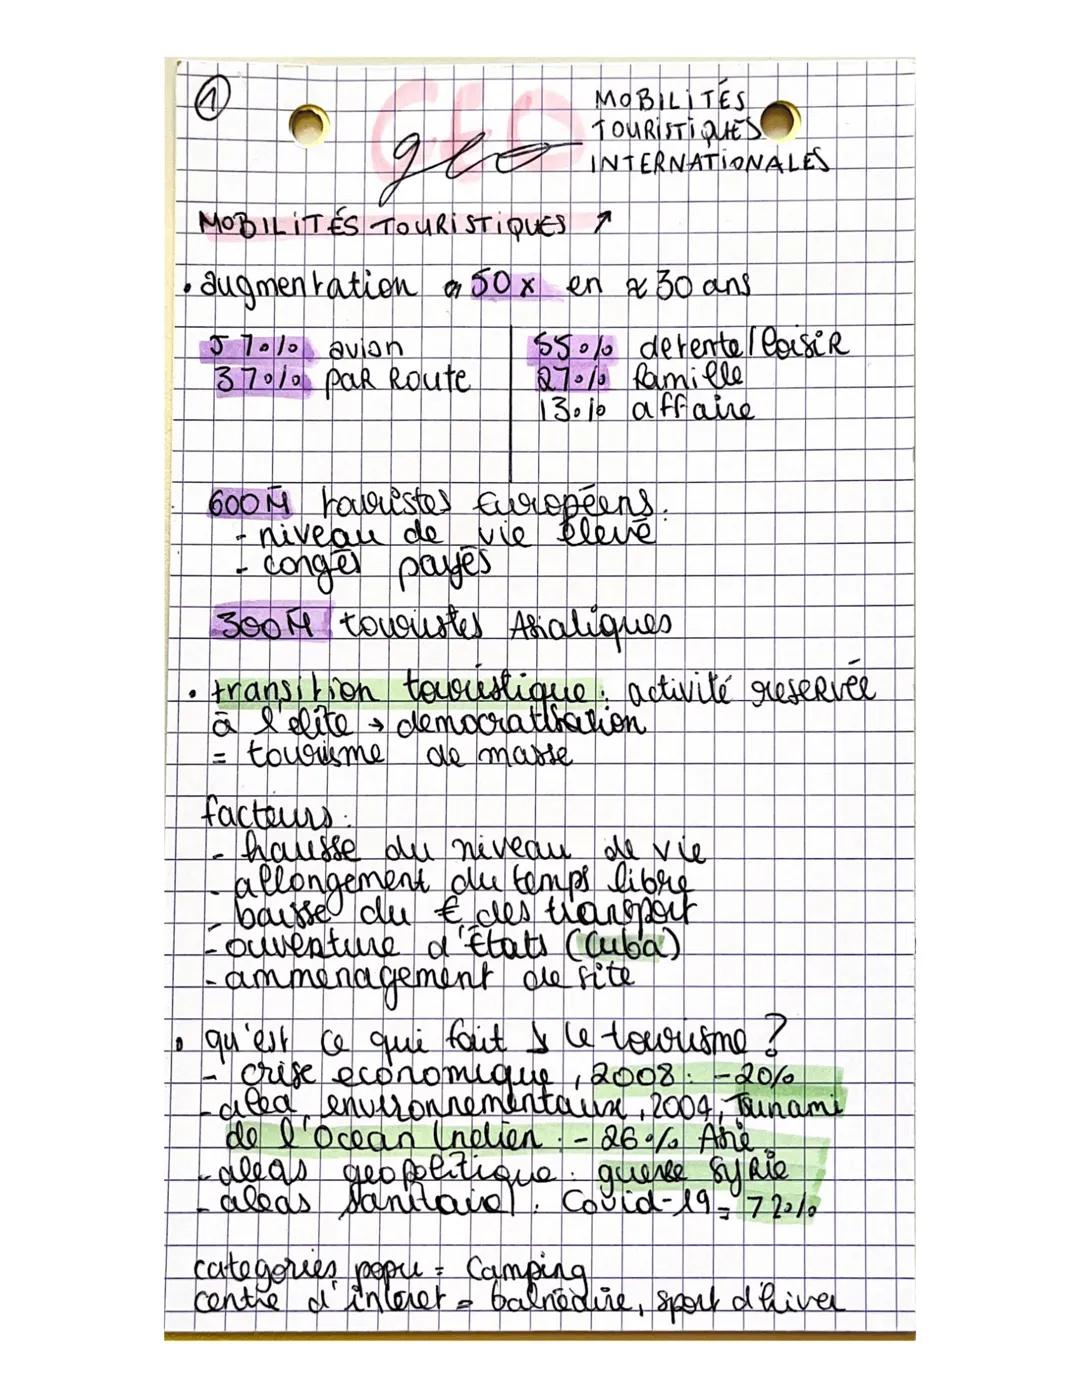 1
GEO
geo
MOBILITÉS
TOURISTIQUES
INTERNATIONALES
MOBILITÉS TOURISTIQUES ↗
• augmentation 50x en ≈ 30 ans
57% avion
37% par route
55% detente/loisir
27% famille
13% affaire
600M touristes Européens.
- niveau de vie élevé
- congés payés
300M touristes Asiatiques
• transition touristique : activité reservée
à l'elite → democratisation
= tourisme de masse
facteurs :
- hausse du niveau de vie
- allongement du temps libre
- baisse du € des transport
- ouverture d'États (Cuba)
- ammenagement de site
• qu'est ce qui fait ↓ le tourisme ?
- crise economique, 2008 : -20%
- alea environnementaux, 2004, Tsunami
de l'Ocean Indien : - 26% Asie
- aleas geopolitique : guerre Syrie
- aleas sanitaire : Covid-19 = 72%
categories popu = Camping
centre d'interet = balnéaire, sport d'hiver